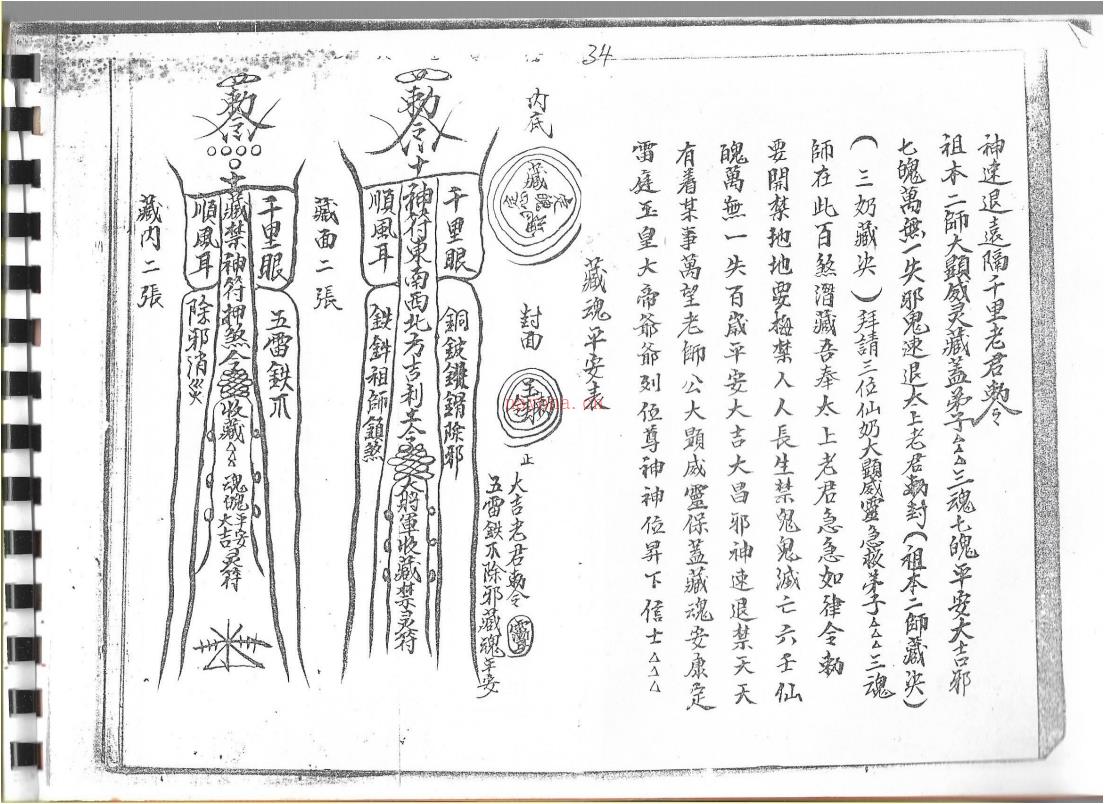 34
神速退遠隔千里老君勅令
祖本二師大顯威灵藏蓋弟子△△三魂七魄平安大吉邪
七魄萬無一失邪鬼速退太上老君勅封(祖本二師藏決)
(三奶藏決)拜請三位仙奶大顯威靈急救弟子△△三魂
師在此百煞潛藏吾奉太上老君急急如律令勅
要開禁地地要梅禁人人長生禁鬼鬼滅亡六壬仙
魄萬無一失百歲平安大吉大昌邪神速退禁天天
有着某事萬望老師公大顯威靈保蓋藏魂安康足
雷庭玉皇大帝爺爺列位尊神神位昇下信士△△△
藏魂平安表
內底
藏
封面
正
大吉老君勅令
五雷鉄爪除邪藏魂平安
勅令
千里眼
神符東南西北方吉利主令
大將軍收藏禁灵符
順風耳
除邪
鉄鈄祖師鎖煞
藏面二張
勅令
千里眼
藏禁神符押煞令
收藏△△魂魄平安大吉灵符
順風耳
五雷鉄爪
除邪消災
藏內二張